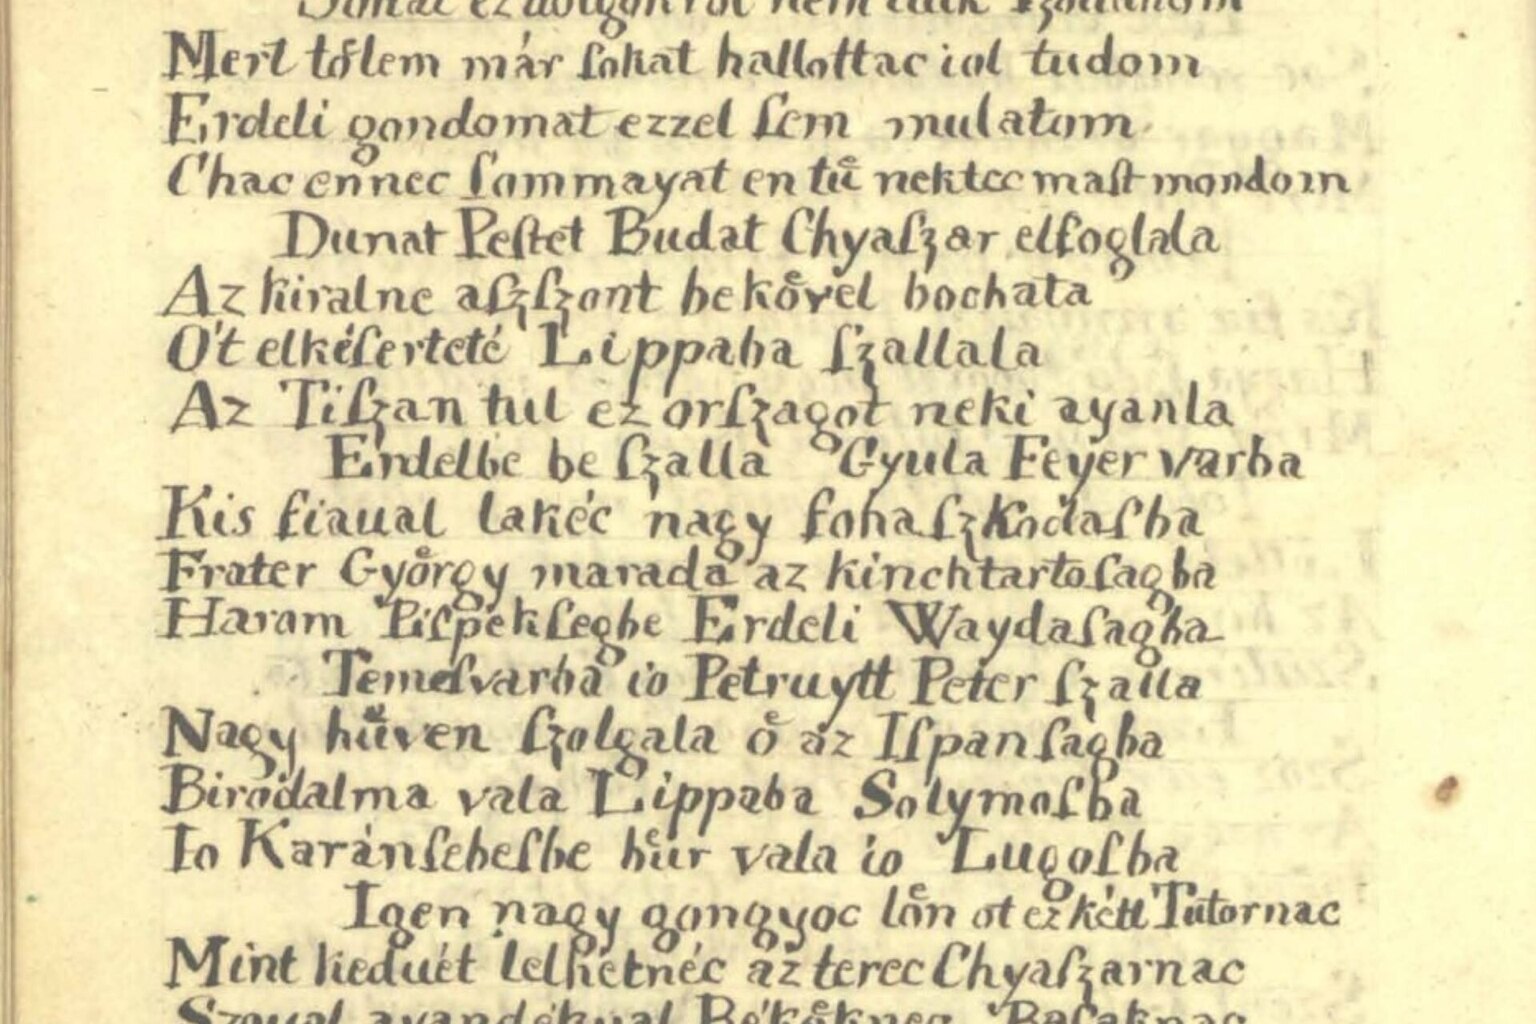 Mert tőlem már ſokat hallottac iol tudom
Erdeli gondomat ezzel ſem mulatom
Chac ennec ſommayat en tuͤ nektec maſt mondom
Dunat Peſtet Budat Chyaſzar elfoglala
Az kiralne aſzſzont bekoͤvel bochata
Ót elkéſerteté Lippaba ſzallala
Az Tiſzan tul ez orſzagot neki ayanla
Erdelbe be ſzalla Gyula Feyer varba
Kis fiaual lakéc nagy fohaſzkodaſba
Frater Gyoͤrgy marada az kinchtartoſagba
Harom Piſpekſegbe Erdeli Waydaſagba
Temeſvarba io Petruytt Peter ſzalla
Nagy huͤven ſzolgala oͤ az Iſpanſagba
Birodalma vala Lippaba Solymoſba
Io Karánſebeſbe huͤr vala io Lugoſba
Igen nagy gongyoc loͤn ot ez kétt Tutornac
Mint keduét lelhetnéc az terec Chyaſzarnac